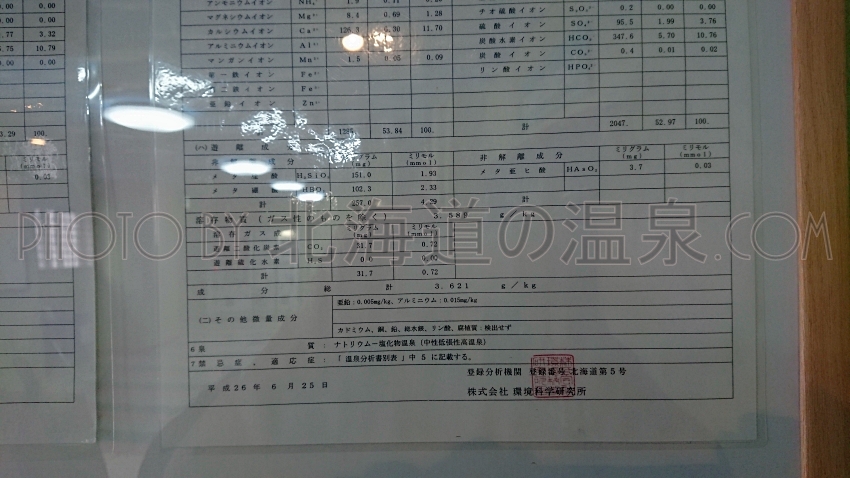 アンモニウムイオン NH₄⁺ 1.9 0.11
マグネシウムイオン Mg²⁺ 8.4 0.69 1.28
カルシウムイオン Ca²⁺ 126.3 6.30 11.70
アルミニウムイオン Al³⁺
マンガンイオン Mn²⁺ 1.5 0.05 0.09
第一鉄イオン Fe²⁺
Fe³⁺
亜鉛イオン Zn²⁺
計 1385. 53.84 100.
チオ硫酸イオン S₂O₃²⁻ 0.2 0.00 0.00
硫酸イオン SO₄²⁻ 95.5 1.99 3.76
炭酸水素イオン HCO₃⁻ 347.6 5.70 10.76
炭酸イオン CO₃²⁻ 0.4 0.01 0.02
リン酸イオン HPO₄²⁻
計 2047. 52.97 100.
0.00 0.00
0.00 0.00
1.77 3.32
5.75 10.79
0.00 0.00
3.29 100.
ミリモル
(mmol)
0.03
(ハ)遊離成分
非解離成分 ミリグラム (mg) ミリモル (mmol) 非解離成分 ミリグラム (mg) ミリモル (mmol)
メタケイ酸 H₂SiO₃ 151.0 1.93 メタ亜ヒ酸 HAsO₂ 3.7 0.03
メタホウ酸 HBO₂ 102.3 2.33
計 257.0 4.29
溶存物質(ガス性のものを除く) 3.589 g/kg
溶存ガス成分 ミリグラム (mg) ミリモル (mmol)
遊離二酸化炭素 CO₂ 31.7 0.72
遊離硫化水素 H₂S 0.0 0.00
計 31.7 0.72
成分総計 3.621 g/kg
(ニ)その他微量成分
亜鉛:0.005mg/kg、アルミニウム:0.015mg/kg
カドミウム、銅、鉛、総水銀、リン酸、腐植質:検出せず
6 泉質:ナトリウム−塩化物温泉(中性低張性高温泉)
7 禁忌症、適応症:「温泉分析書別表」中 5 に記載する。
平成26年 6月25日
登録分析機関 登録番号 北海道第5号
株式会社 環境科学研究所
PHOTO BY 北海道の温泉.COM